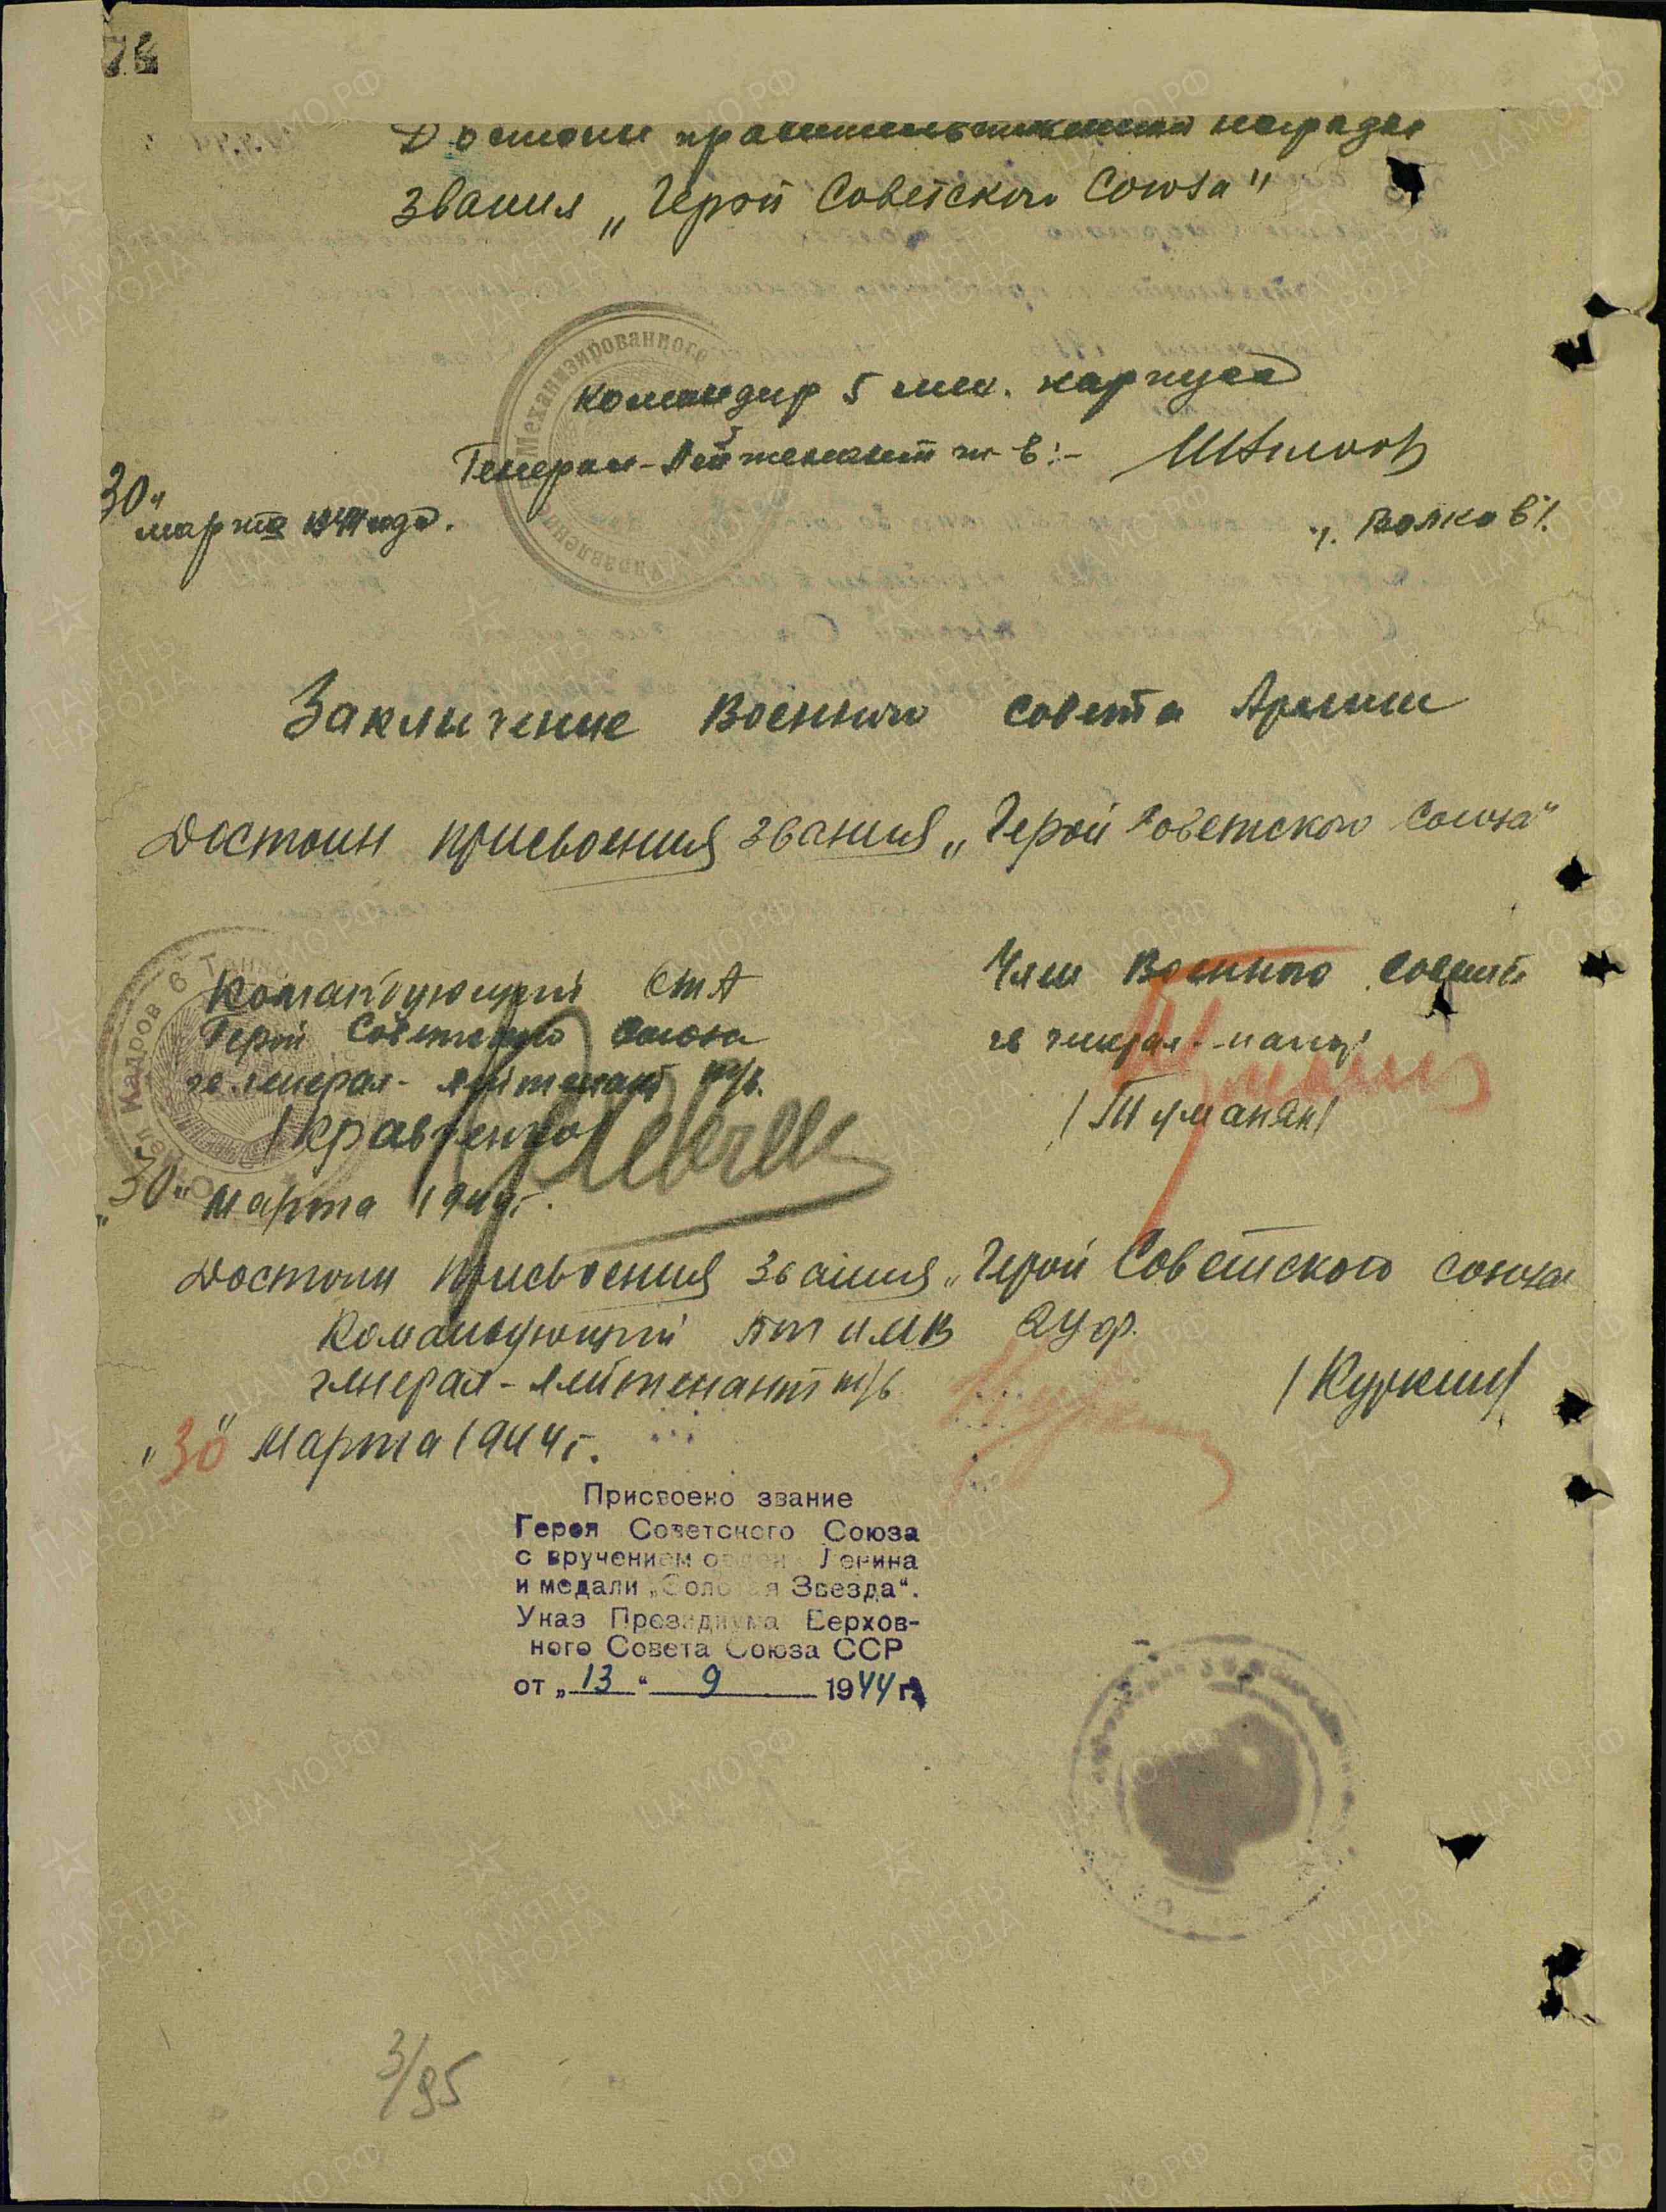 74
Достоин правительственной награды
звания „Герой Советского Союза"
Командир 5 мех. корпуса
Генерал-Лейтенант т-в:-
„30"
марта 1944 года.
/. Волков/.
Механизированного
Управление
Заключение Военного совета Армии
Достоин присвоения звания „Герой Советского Союза"
Командующий 6 ТА
Герой Советского Союза
гв генерал-лейтенант т/в.
/Кравченко/
Член Военного Совета
гв генерал-майор
/Туманян/
„30" Марта 1944г.
Достоин присвоения звания „Герой Советского Союза
Командующий БТ и МВ 2Уф.
генерал-лейтенант т/в
/Куркин/
„30" Марта 1944г.
Присвоено звание
Героя Советского Союза
с вручением орден Ленина
и медали „Золотая Звезда".
Указ Президиума Верхов-
ного Совета Союза ССР
от „13" 9 1944 г.
3/95